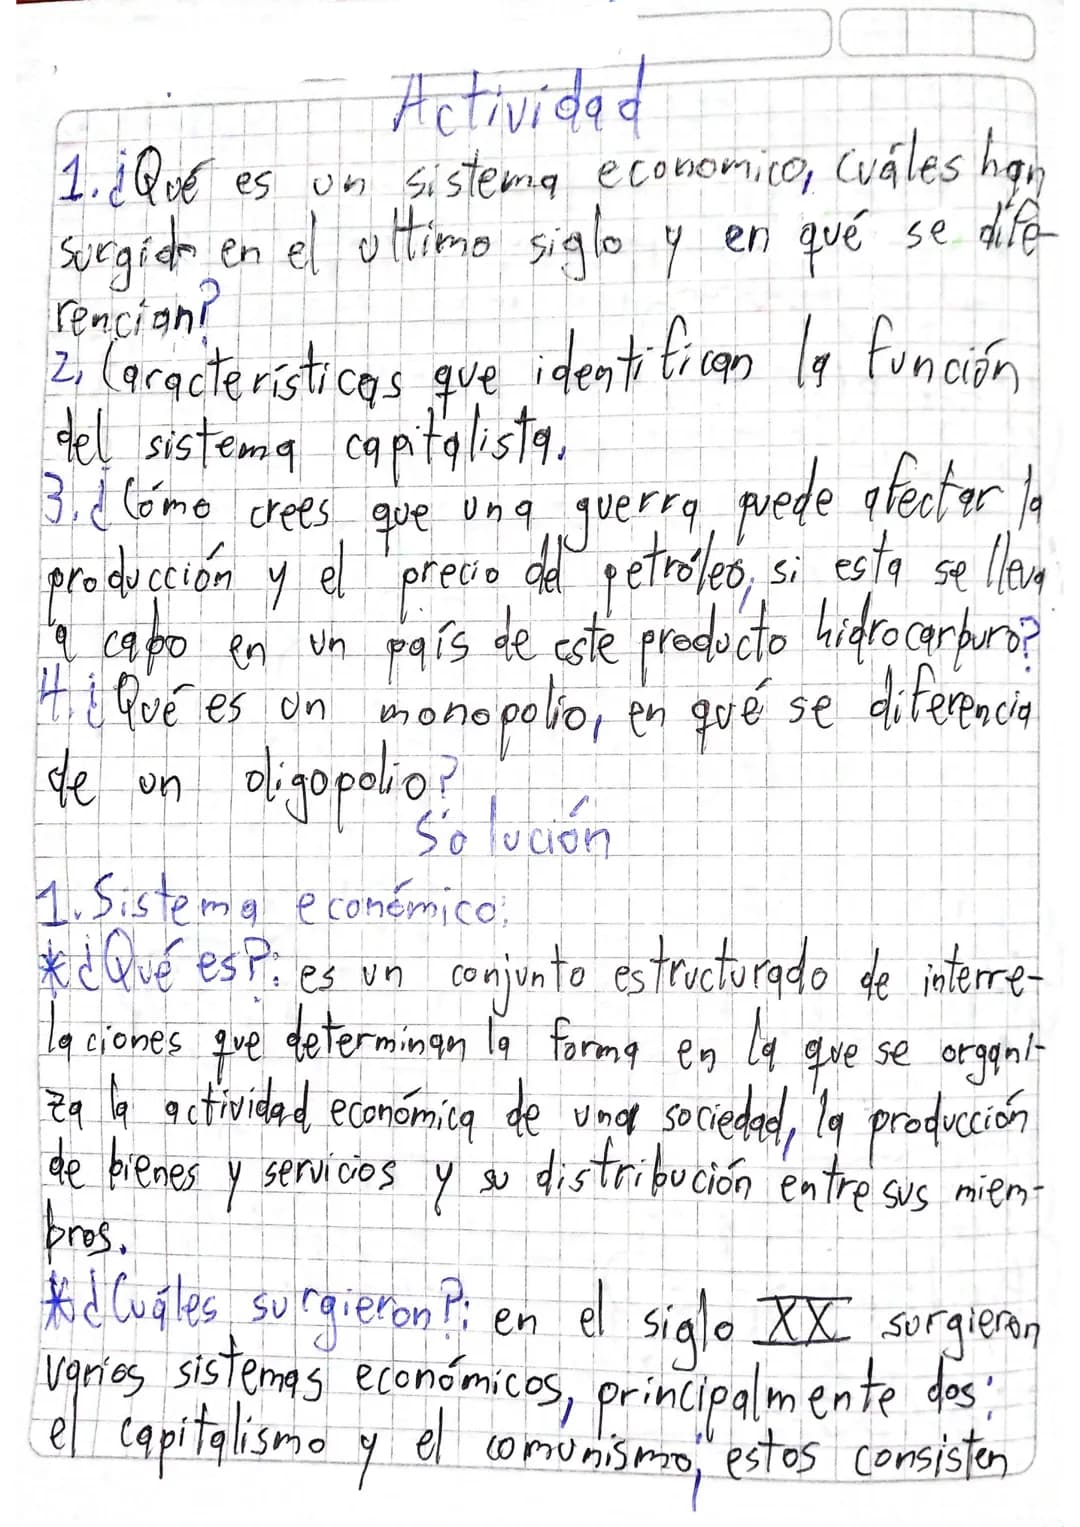 Actividad
1. ¿Qué es un sistema economico, cuáles han
surgido en el ultimo siglo y en qué se dife-
rencian?
2. Características que identifican la función
del sistema capitalista.
3. ¿Cómo crees que una guerra puede afectar la
producción y el precio del petróleo, si esta se lleva
a cabo en un país de este producto hidrocarburo?
4. ¿Qué es un monopolio, en qué se diferencia
de un oligopolio?
Solución
1. Sistema económico:
*¿Qué es?: es un conjunto estructurado de interre-
laciones que determinan la forma en la que se organi-
za la actividad económica de una sociedad, la producción
de bienes y servicios y su distribución entre sus miem-
bros.
*¿Cuáles surgieron?: en el siglo XX surgieron
varios sistemas económicos, principalmente dos:
el capitalismo y el comunismo; estos consisten